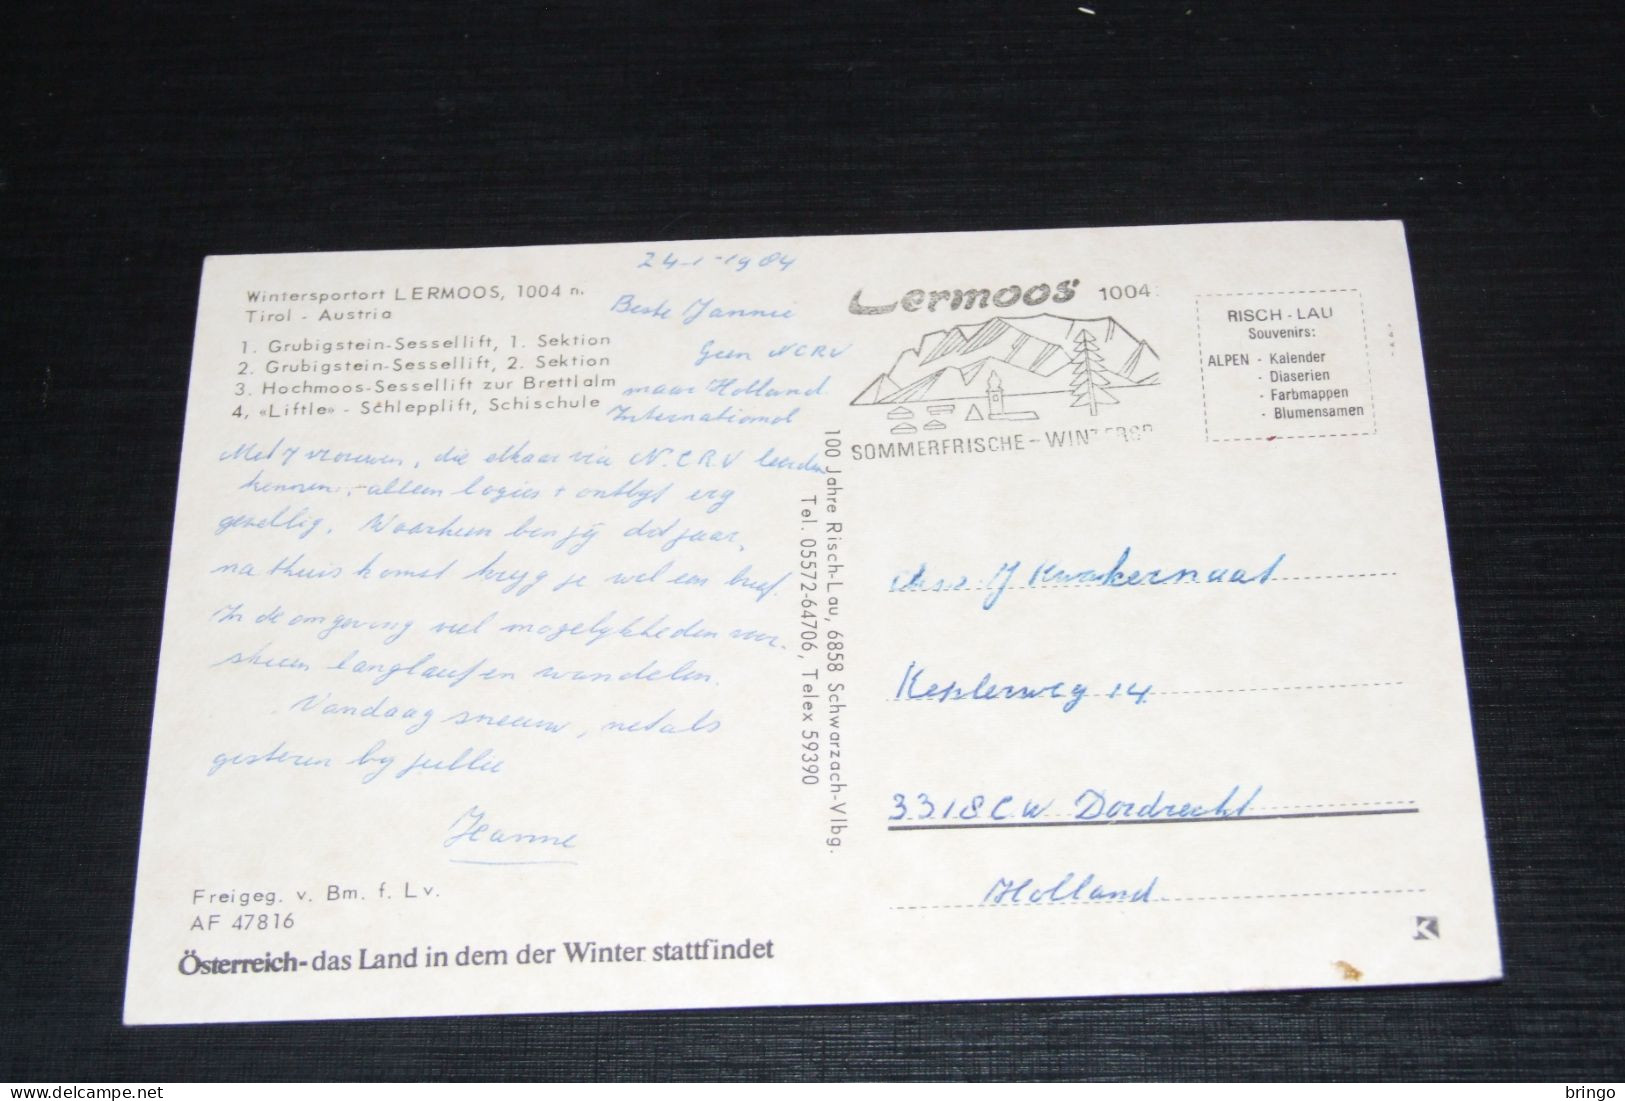 24-1-1984
Wintersportort LERMOOS, 1004 m.
Tirol - Austria
1. Grubigstein-Sessellift, 1. Sektion
2. Grubigstein-Sessellift, 2. Sektion
3. Hochmoos-Sessellift zur Brettlalm
4, «Liftle» - Schlepplift, Schischule
Beste Jannie
Geen NCRV
maar Holland
International
Met 7 vrouwen, die elkaar via N.C.R.V leerden
kennen, alleen logies + ontbyt erg
gezellig. Waarheen ben jij dit jaar,
na thuiskomst kryg je wel een brief.
In de omgeving veel mogelykheden voor
skieen langlaufen wandelen.
Vandaag sneeuw, net als
gisteren by jullie
Jeanne
Freigeg. v. Bm. f. Lv.
AF 47816
Österreich-das Land in dem der Winter stattfindet
100 Jahre Risch-Lau, 6858 Schwarzach-Vlbg.
Tel. 05572-64706, Telex 59390
Lermoos 1004
SOMMERFRISCHE-WINTERSP
RISCH-LAU
Souvenirs:
ALPEN - Kalender
- Diaserien
- Farbmappen
- Blumensamen
J Kwakernaat
Keplerweg 14
3318 CW Dordrecht
Holland
K
delcampe.net
bringo